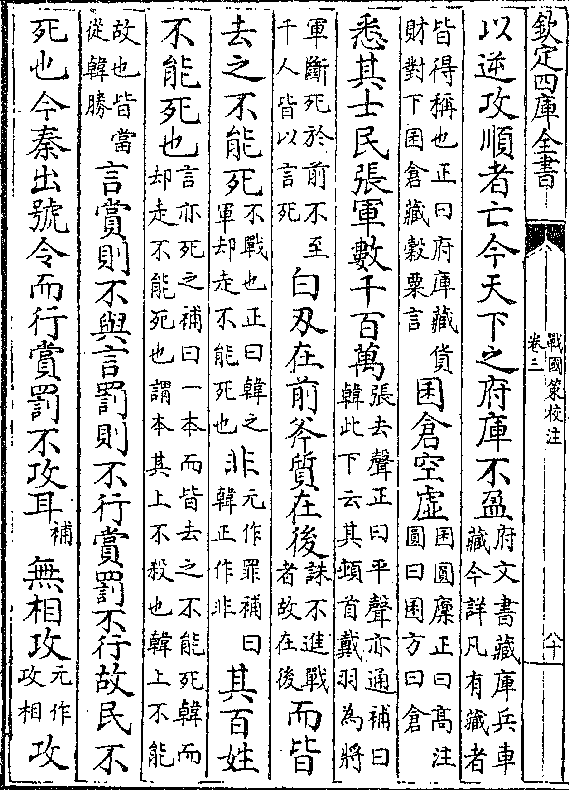 欽定四庫全書
戰國策校注
卷三
八十
以逆攻順者亡今天下之府庫不盈府文書藏庫兵車藏今詳凡有藏者
皆得稱也正曰府庫藏貨財對下囷倉藏穀粟言囷倉空虛囷圓廩正曰高注圓曰囷方曰倉
悉其士民張軍數千百萬張去聲正曰平聲亦通補曰韓此下云其頓首戴羽為將
軍斷死於前不至千人皆以言死白刃在前斧質在後誅不進戰者故在後而皆
去之不能死不戰也正曰韓之軍却走不能死也非元作罪補曰韓正作非其百姓
不能死也言亦死之補曰一本而皆去之不能死韓而却走不能死也謂本其上不殺也韓上不能
故也皆當從韓勝言賞則不與言罰則不行賞罰不行故民不
死也今秦出號令而行賞罰不攻耳補無相攻元作攻相攻